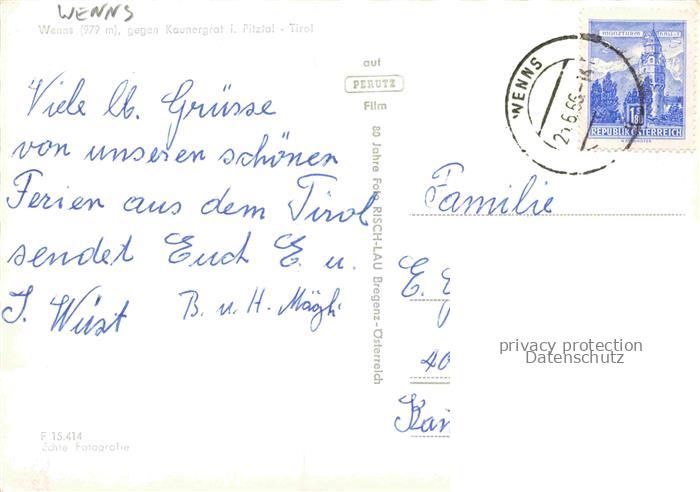 WENNS
Wenns (979 m), gegen Kaunergrat i. Pitztal - Tirol
auf
PERUTZ
Film
Viele lb. Grüsse
von unseren schönen
Ferien aus dem Tirol
sendet Euch E. u.
J. Wüst B. u. H. Mägli
80 Jahre Foto RISCH-LAU Bregenz-Österreich
F 15.414
Echte Fotografie
WENNS
6.66
MÜNZTURM HALL I. T.
1.80
REPUBLIK ÖSTERREICH
Familie
E. E
40
privacy protection
Datenschutz